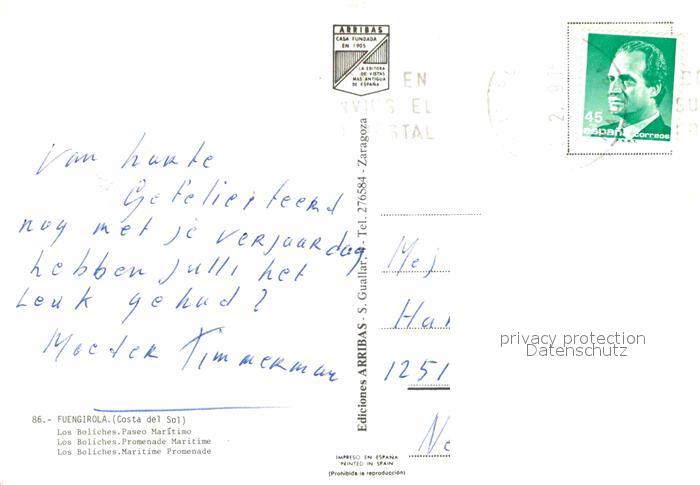 ARRIBAS
CASA FUNDADA
EN 1905
LA EDITORA
DE VISTAS
MAS ANTIGUA
DE ESPAÑA
EN
EL
45
españa correos
Van harte
Gefeliciteerd
nog met je verjaardag
hebben julli het
Leuk gehad?
Moeder Timmerman
Ediciones ARRIBAS - S. Guallar, Tel. 276584 - Zaragoza
Mej
Har
1251
Ne
privacy protection
Datenschutz
86.- FUENGIROLA.(Costa del Sol)
Los Boliches.Paseo Marítimo
Los Boliches.Promenade Maritime
Los Boliches.Maritime Promenade
IMPRESO EN ESPAÑA
PRINTED IN SPAIN
(Prohibida la reproducción)